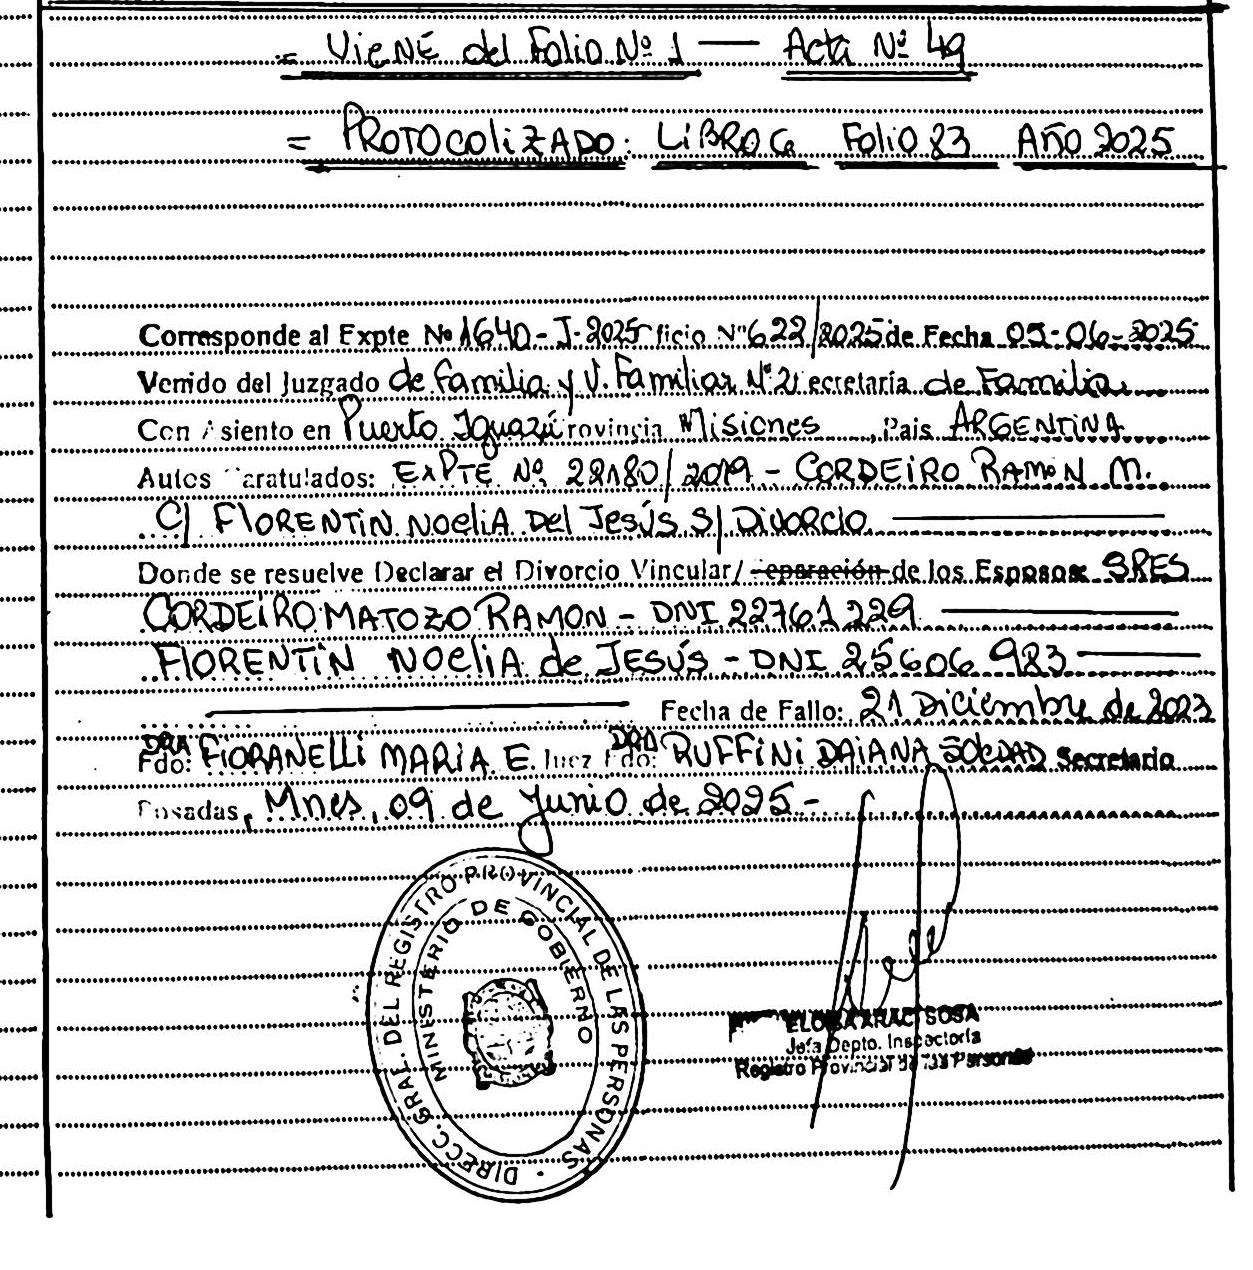 = Viene del Folio Nº 1 — Acta Nº 49
= PROTOCOLIZADO: LIBRO G Folio 83 AÑO 2025
Corresponde al Expte Nº 1640-J-2025 ficio Nº 622/2025 de Fecha 05-06-2025
Venido del Juzgado de familia y V. Familiar Nº 2 ecretaría de Familia
Con Asiento en Puerto Iguazú rovincia Misiones, Pais ARGENTINA
Autos aratulados: EXPTE Nº 22180/2019 - CORDEIRO RAMON M.
C/ FLORENTIN NOELIA Del Jesús S/ Divorcio
Donde se resuelve Declarar el Divorcio Vincular/ eparación de los Esposos SRES
CORDEIRO MATOZO RAMON - DNI 22761229
FLORENTIN NOELIA de JESÚS - DNI 25606983
Fecha de Fallo: 21 Diciembre de 2023
DRA DRA
Fdo: FIORANELLI MARIA E. Juez Fdo: RUFFINI DAIANA SOLEDAD Secretario
Posadas, Mnes, 09 de Junio de 2025-
DIRECC. GRAL. DEL REGISTRO PROVINCIAL DE LAS PERSONAS
MINISTERIO DE GOBIERNO
ELOISA ARACI SOSA
Jefa Depto. Inspectoría
Registro Provincial de las Personas